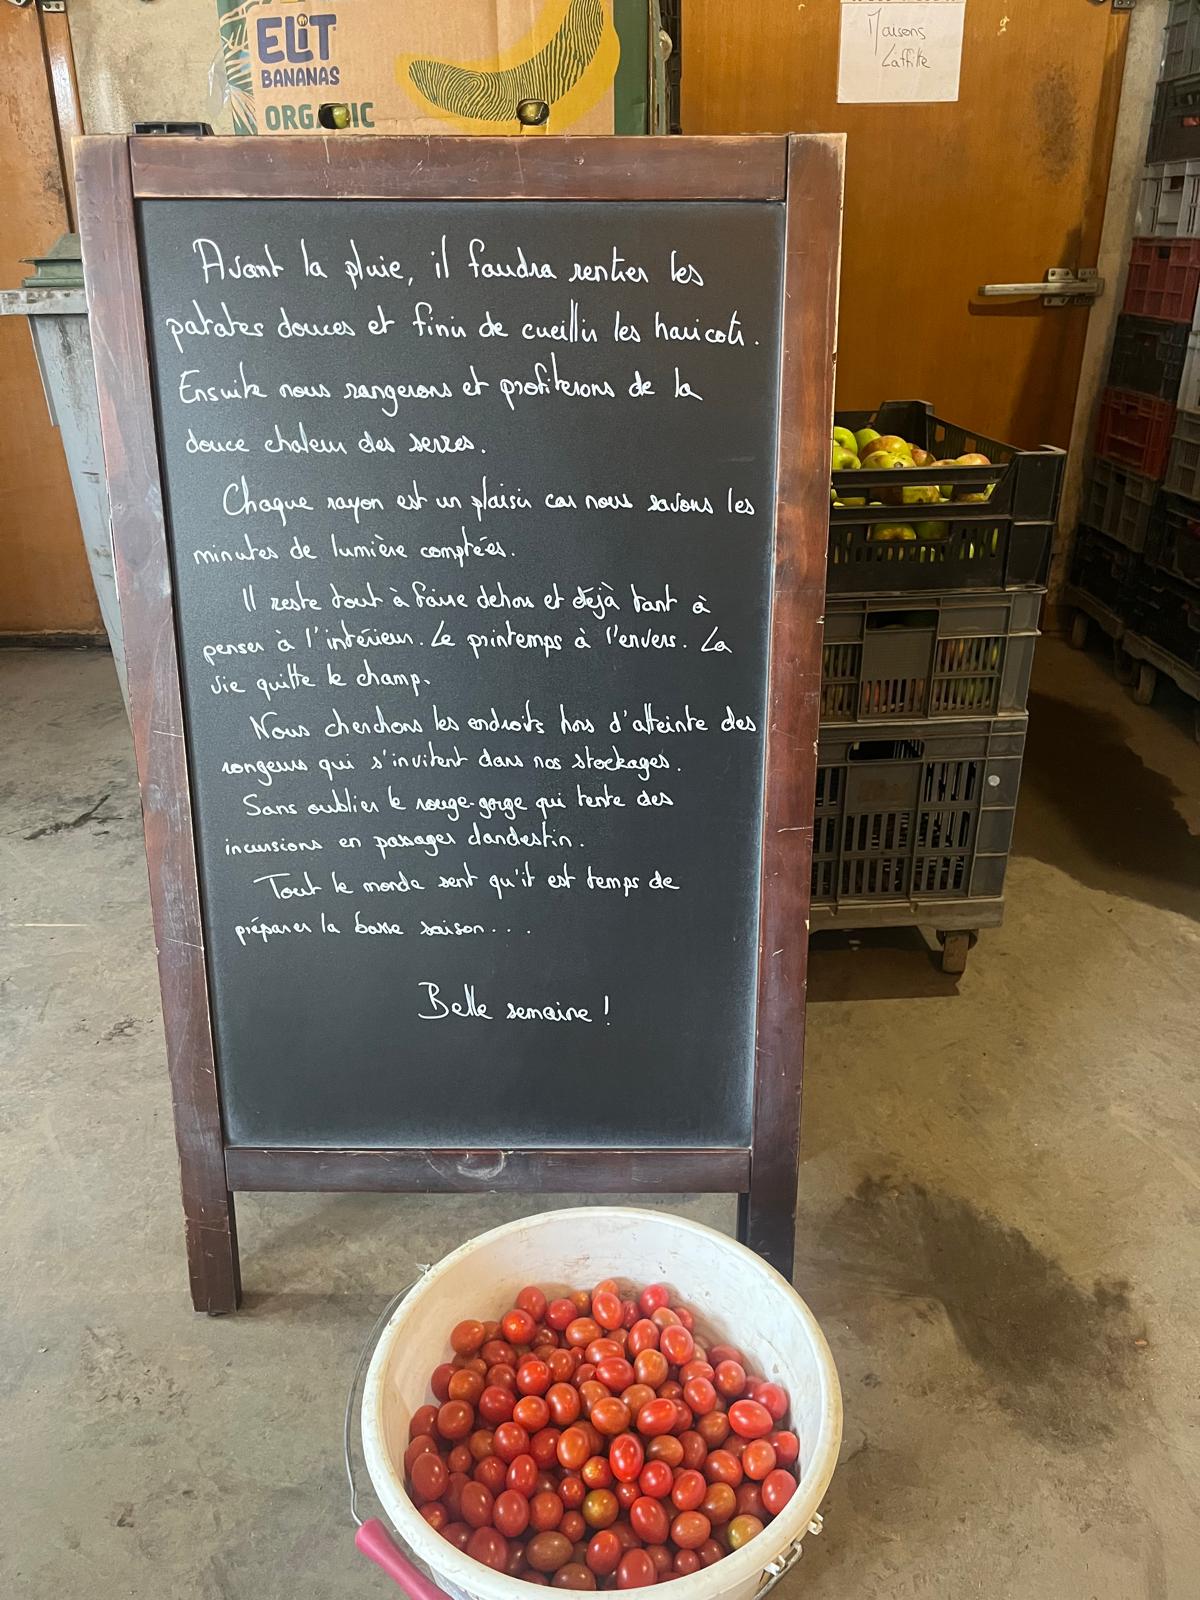 ELiT
BANANAS
ORGANIC
Maisons
Laffitte
Avant la pluie, il faudra rentrer les
patates douces et finir de cueillir les haricots.
Ensuite nous rangerons et profiterons de la
douce chaleur des serres.
Chaque rayon est un plaisir car nous savons les
minutes de lumière comptées.
Il reste tout à faire dehors et déjà tant à
penser à l'intérieur. Le printemps à l'envers. La
vie quitte le champ.
Nous cherchons les endroits hors d'atteinte des
rongeurs qui s'invitent dans nos stockages.
Sans oublier le rouge-gorge qui tente des
incursions en passager clandestin.
Tout le monde sent qu'il est temps de
préparer la basse saison...
Belle semaine !